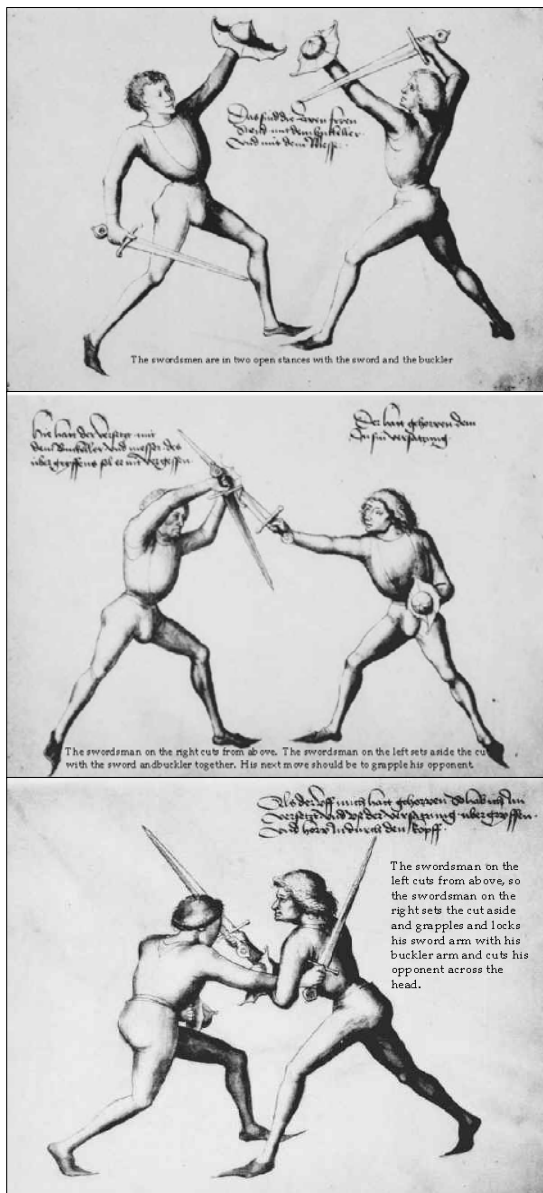 Das sind die freyen
Stend mit dem buckeller
Vnd mit dem Messr
The swordsmen are in two open stances with the sword and the buckler
Hie hatt der versetzt mit
dem Buckeller vnd messer des
sol er nit vergessen
Der hatt gehowen dem
In sin versatzung
The swordsman on the right cuts from above. The swordsman on the left sets aside the cu
with the sword andbuckler together. His next move should be to grapple his opponent.
Als der mich hatt gehowen So hab ich Im
versetzt vnd vß der versatzung übergriffen
vnd In durch den kopff
The swordsman on the
left cuts from above, so
the swordsman on the
right sets the cut aside
and grapples and locks
his sword arm with his
buckler arm and cuts his
opponent across the
head.